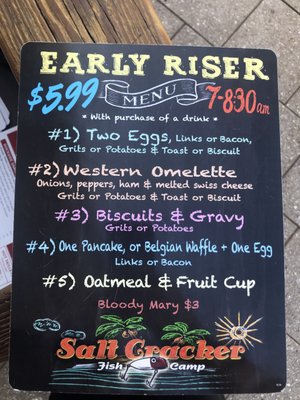 EARLY RISER
$5.99 MENU 7-8:30am
* With purchase of a drink *
#1) Two Eggs, Links or Bacon,
Grits or Potatoes & Toast or Biscuit
#2) Western Omelette
Onions, peppers, ham & melted swiss cheese
Grits or Potatoes & Toast or Biscuit
#3) Biscuits & Gravy
Grits or Potatoes
#4) One Pancake, or Belgian Waffle + One Egg
Links or Bacon
#5) Oatmeal & Fruit Cup
Bloody Mary $3
Salt Cracker
Fish Camp